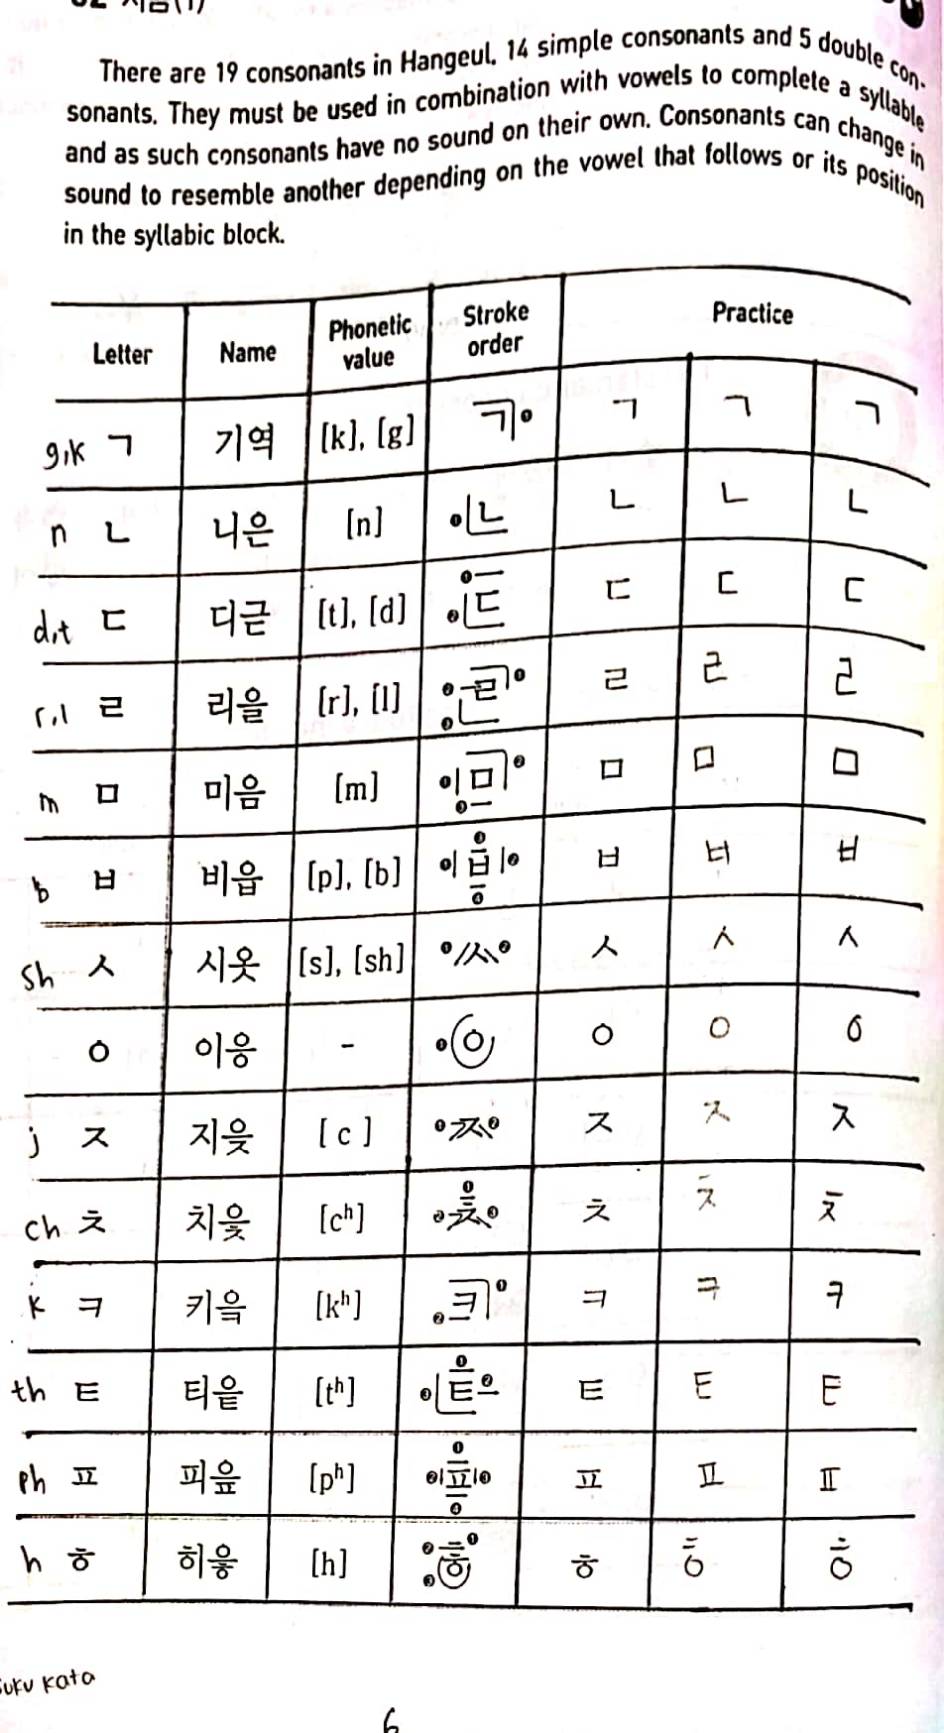 There are 19 consonants in Hangeul. 14 simple consonants and 5 double con-
sonants. They must be used in combination with vowels to complete a syllable
and as such consonants have no sound on their own. Consonants can change in
sound to resemble another depending on the vowel that follows or its position
in the syllabic block.
Letter Name Phonetic value Stroke order Practice
g,k ㄱ 기역 [k], [g] ㄱ ㄱ ㄱ ㄱ
n ㄴ 니은 [n] ㄴ ㄴ ㄴ ㄴ
d,t ㄷ 디귿 [t], [d] ㄷ ㄷ ㄷ ㄷ
r,l ㄹ 리을 [r], [l] ㄹ ㄹ ㄹ ㄹ
m ㅁ 미음 [m] ㅁ ㅁ ㅁ ㅁ
b ㅂ 비읍 [p], [b] ㅂ ㅂ ㅂ ㅂ
sh ㅅ 시옷 [s], [sh] ㅅ ㅅ ㅅ ㅅ
ㅇ 이응 - ㅇ ㅇ ㅇ ㅇ
j ㅈ 지읒 [c] ㅈ ㅈ ㅈ ㅈ
ch ㅊ 치읓 [cʰ] ㅊ ㅊ ㅊ ㅊ
k ㅋ 키읔 [kʰ] ㅋ ㅋ ㅋ ㅋ
th ㅌ 티읕 [tʰ] ㅌ ㅌ ㅌ ㅌ
ph ㅍ 피읖 [pʰ] ㅍ ㅍ ㅍ ㅍ
h ㅎ 히읗 [h] ㅎ ㅎ ㅎ ㅎ
suku kata
6